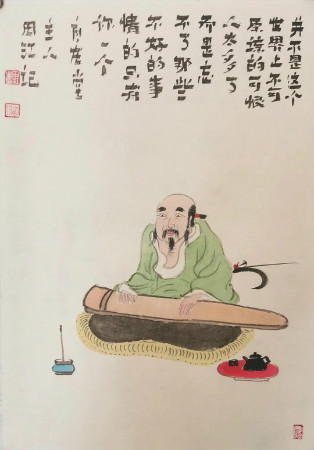 并不是这个
世界上不可
原谅的可恨
人太多了
而是忘
不了那些
不好的事
情的只有
你一个
堂
主人
周江记